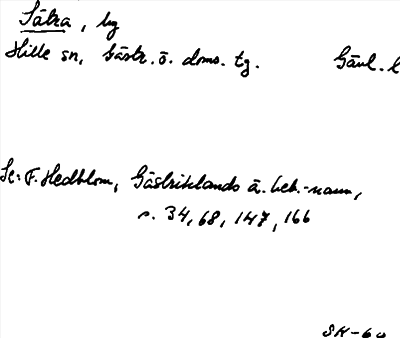 Sätra, by
Hille sn, Gästr. ö. doms. tg. Gävl. l
Se: F. Hedblom, Gästriklands ä. beb.-namn,
s. 34, 68, 147, 166